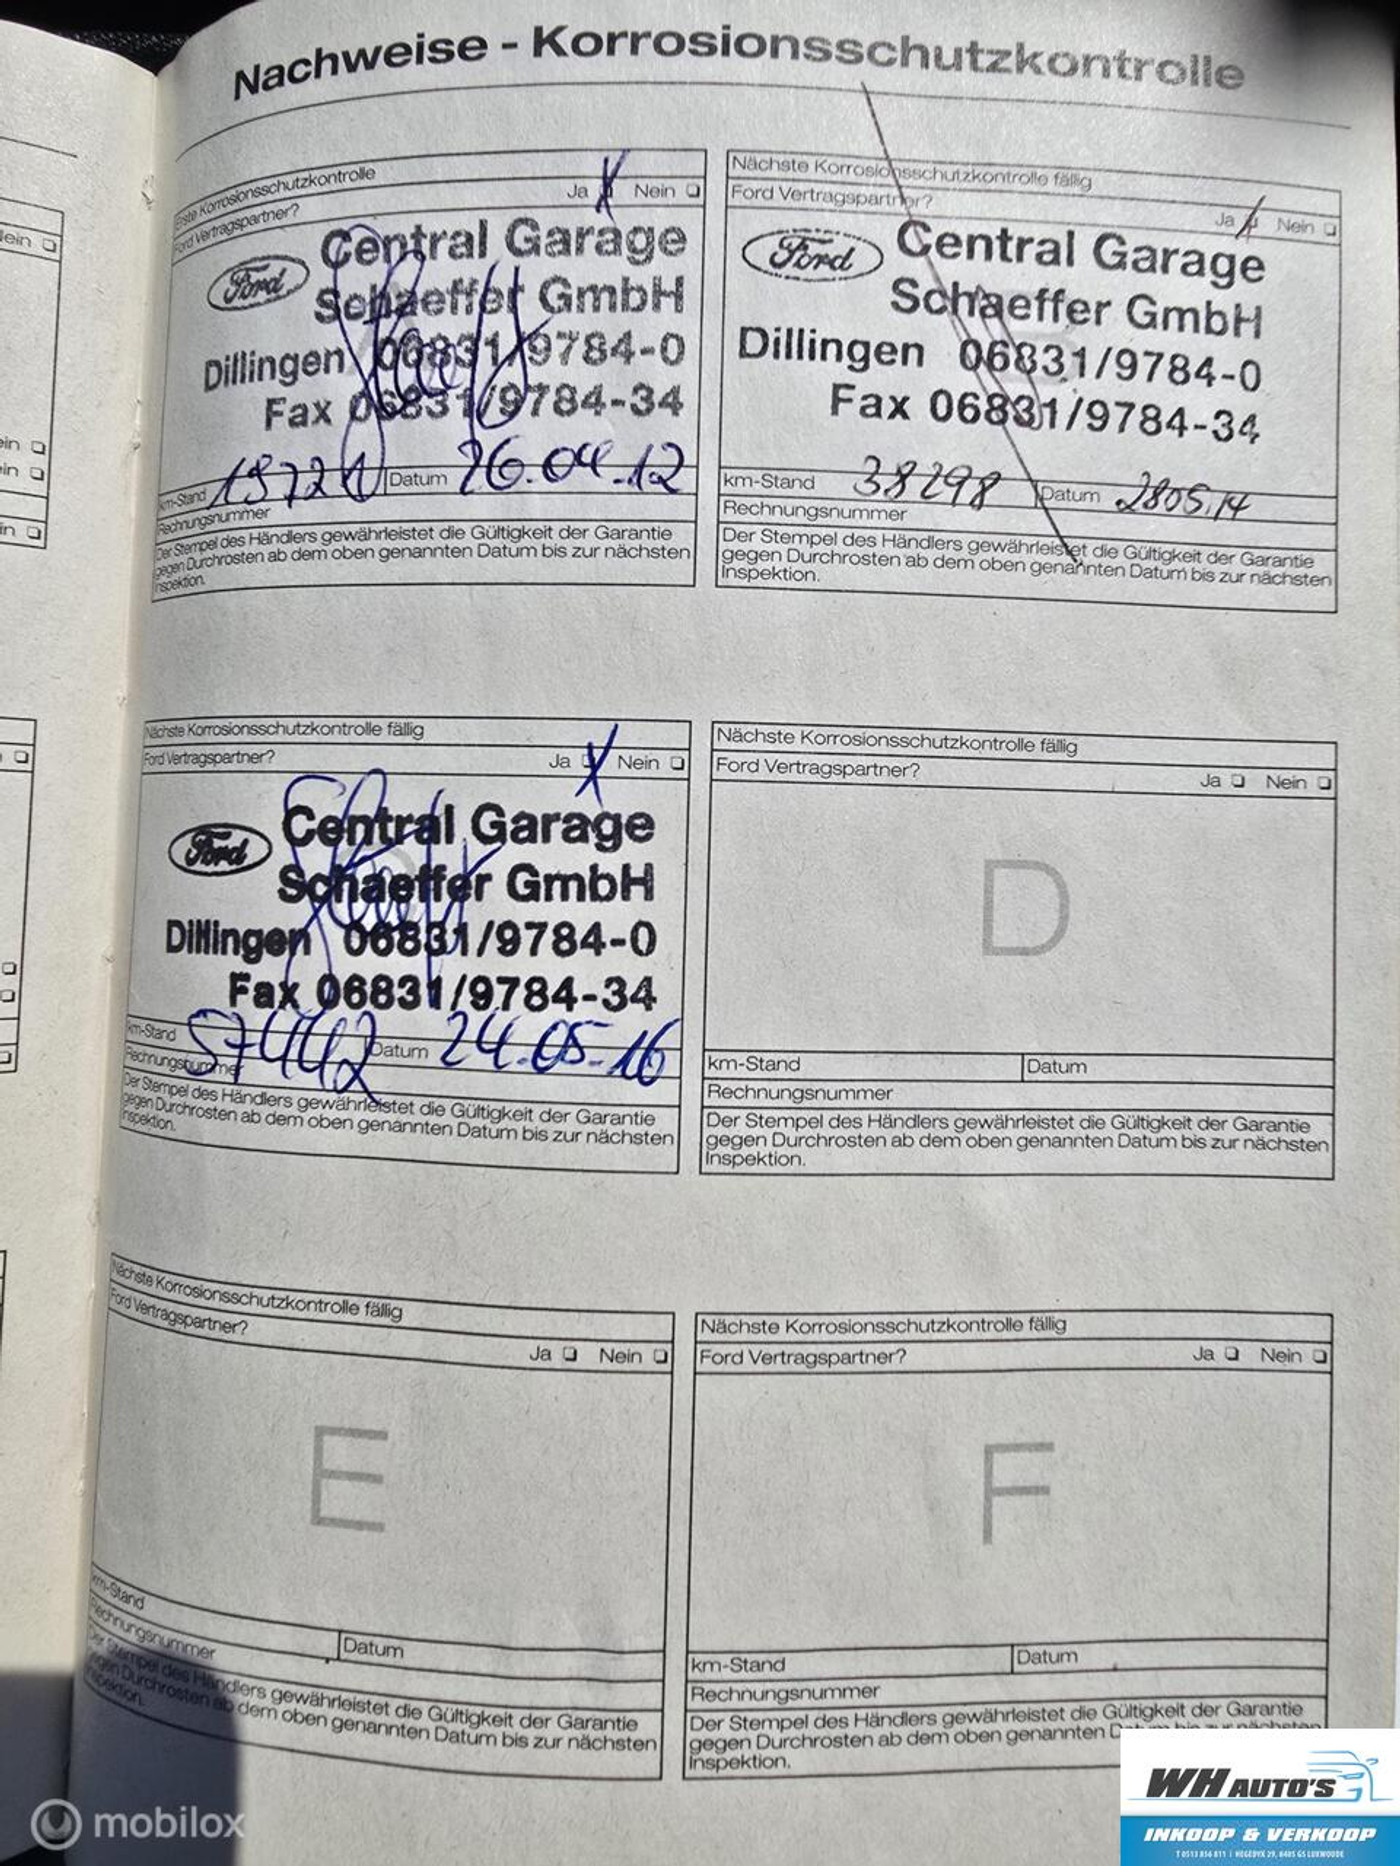 Nachweise - Korrosionsschutzkontrolle
Erste Korrosionsschutzkontrolle
Ford Vertragspartner?
Ja Nein
Ford
Central Garage
Schaeffer GmbH
Dillingen 06831/9784-0
Fax 06831/9784-34
km-Stand Datum 26.04.12
Rechnungsnummer
Der Stempel des Händlers gewährleistet die Gültigkeit der Garantie
gegen Durchrosten ab dem oben genannten Datum bis zur nächsten
Inspektion.
Nächste Korrosionsschutzkontrolle fällig
Ford Vertragspartner?
Ja Nein
Ford
Central Garage
Schaeffer GmbH
Dillingen 06831/9784-0
Fax 06831/9784-34
km-Stand 38298 Datum 2805.14
Rechnungsnummer
Der Stempel des Händlers gewährleistet die Gültigkeit der Garantie
gegen Durchrosten ab dem oben genannten Datum bis zur nächsten
Inspektion.
Nächste Korrosionsschutzkontrolle fällig
Ford Vertragspartner?
Ja Nein
Ford
Central Garage
Schaeffer GmbH
Dillingen 06831/9784-0
Fax 06831/9784-34
km-Stand 57442 Datum 24.05.16
Rechnungsnummer
Der Stempel des Händlers gewährleistet die Gültigkeit der Garantie
gegen Durchrosten ab dem oben genannten Datum bis zur nächsten
Inspektion.
Nächste Korrosionsschutzkontrolle fällig
Ford Vertragspartner?
Ja Nein
D
km-Stand Datum
Rechnungsnummer
Der Stempel des Händlers gewährleistet die Gültigkeit der Garantie
gegen Durchrosten ab dem oben genannten Datum bis zur nächsten
Inspektion.
Nächste Korrosionsschutzkontrolle fällig
Ford Vertragspartner?
Ja Nein
E
km-Stand Datum
Rechnungsnummer
Der Stempel des Händlers gewährleistet die Gültigkeit der Garantie
gegen Durchrosten ab dem oben genannten Datum bis zur nächsten
Inspektion.
Nächste Korrosionsschutzkontrolle fällig
Ford Vertragspartner?
Ja Nein
F
km-Stand Datum
Rechnungsnummer
Der Stempel des Händlers gewährleistet die Gültigkeit der Garantie
gegen Durchrosten ab dem oben genannten
Inspektion.
mobilox
WH AUTO'S
INKOOP & VERKOOP
T 0513 856 811 | HEGEDYK 29, 8405 GS LUXWOUDE